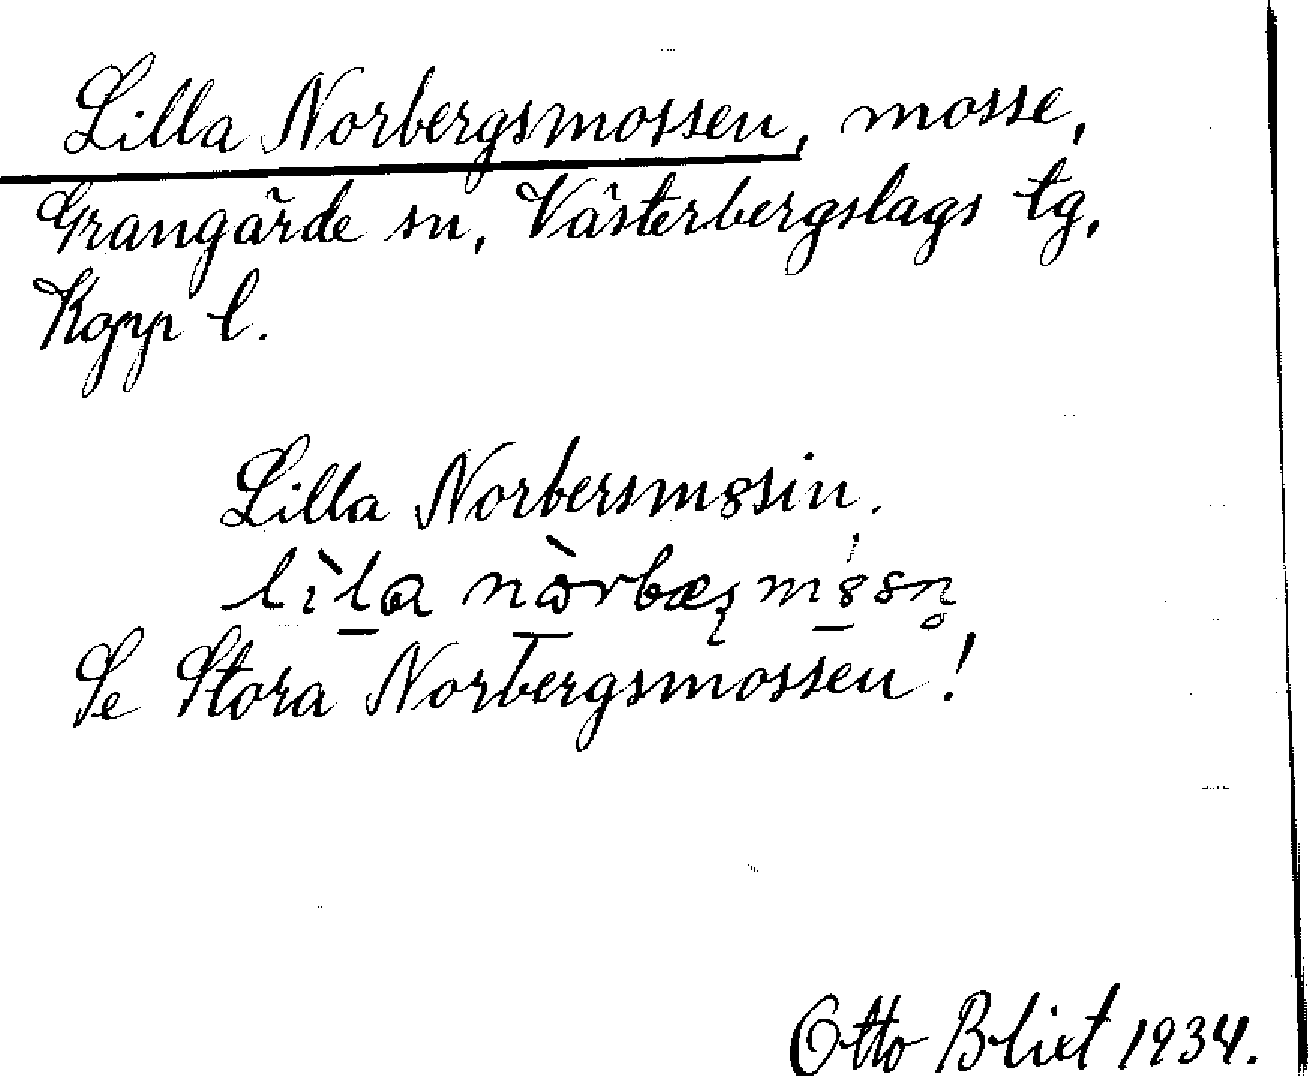 Lilla Norbergsmossen, mosse,
Grangärde sn, Västerbergslags tg,
Kopp l.
Lilla Norbersmssin.
Se Stora Norbergsmossen!
Otto Blixt 1934.